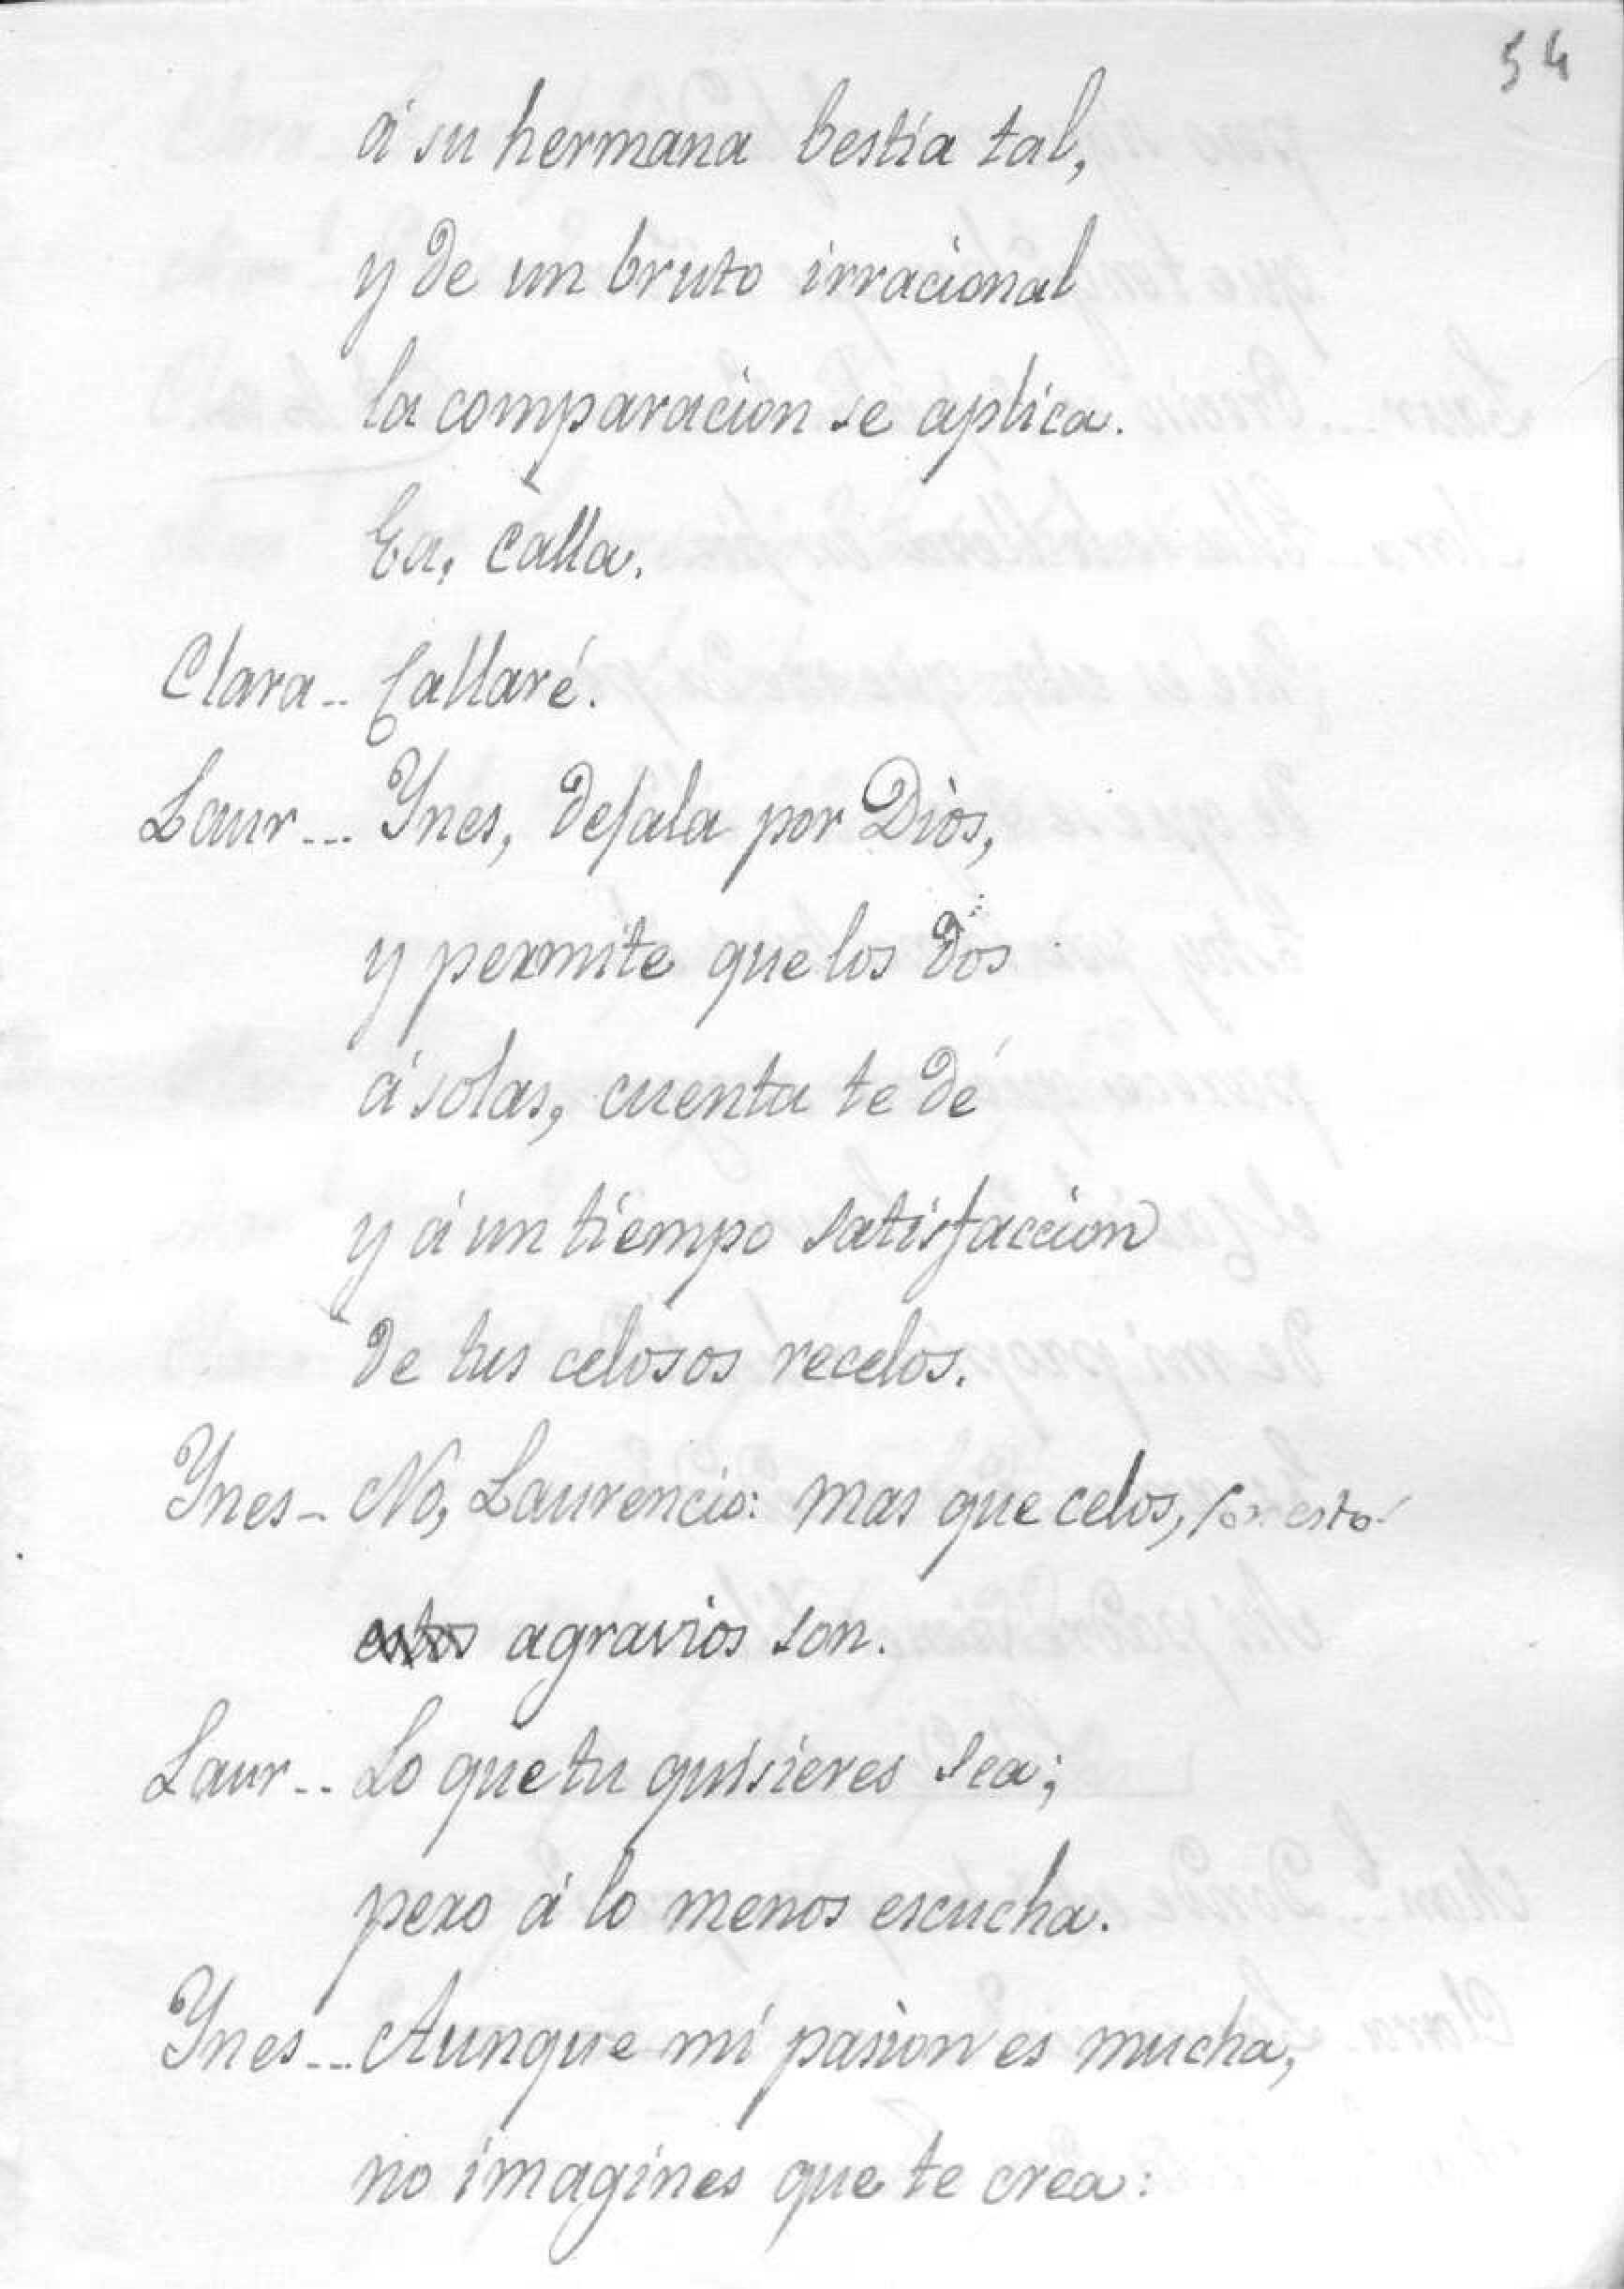 54
á su hermana bestia tal,
y de un bruto irracional
la comparacion se aplica.
Ea, calla.
Clara -- Callaré.
Laur --- Ynes, dejala por Dios,
y permite que los dos
á solas, cuenta te dé
y á un tiempo satisfaccion
de tus celosos recelos.
Ynes - No, Laurencio: mas que celos,
estos agravios son.
Laur -- Lo que tu quisieres sea;
pero á lo menos escucha.
Ynes --- Aunque mi pasion es mucha,
no imagines que te crea: